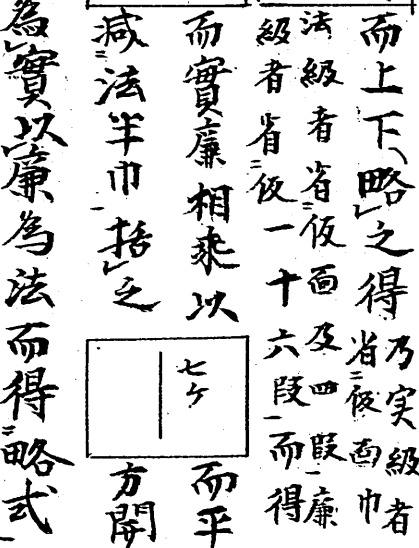 而上下略之得乃実級者
省二仮面巾
法級者省二仮面及四段一廉
級者省二仮一十六段一而得
而實廉相乗以七ケ而平
減二法半巾一括之方開
為實以廉為法而得二略式一